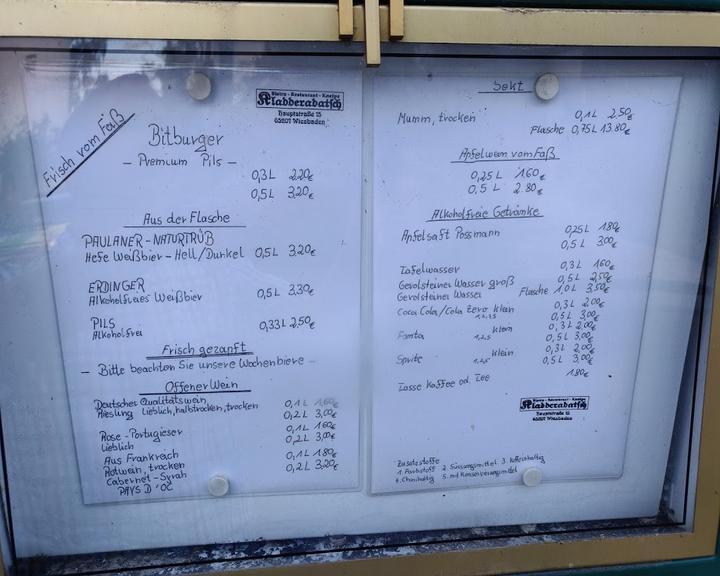 Bistro - Restaurant - Kneipe
Kladderadatsch
Hauptstraße 15
65207 Wiesbaden
Frisch vom Faß
Bitburger
- Premium Pils -
0,3 L 2,20€
0,5 L 3,20€
Aus der Flasche
PAULANER-NATURTRÜB
Hefe Weißbier - Hell/Dunkel 0,5 L 3,20€
ERDINGER
Alkoholfreies Weißbier 0,5 L 3,30€
PILS
Alkoholfrei 0,33 L 2,50€
Frisch gezapft
- Bitte beachten Sie unsere Wochenbiere -
Offener Wein
Deutscher Qualitätswein 0,1 L 1,60€
Riesling lieblich, halbtrocken, trocken 0,2 L 3,00€
Rose - Portugieser 0,1 L 1,60€
Lieblich 0,2 L 3,00€
Aus Frankreich 0,1 L 1,80€
Rotwein, trocken 0,2 L 3,20€
Cabernet-Syrah
PAYS D'OC
Sekt
Mumm, trocken 0,1 L 2,50€
Flasche 0,75 L 13.80€
Apfelwein vom Faß
0,25 L 1.60€
0,5 L 2.80€
Alkoholfreie Getränke
Apfelsaft Possmann 0,25 L 1.80€
0,5 L 3,00€
Tafelwasser 0,3 L 1.60€
Gerolsteiner Wasser groß 0,5 L 2,50€
Gerolsteiner Wasser Flasche 1,0 L 3,50€
Coca Cola/Cola Zero klein 0,3 L 2,00€
0,5 L 3,00€
Fanta klein 0,3 L 2,00€
0,5 L 3,00€
Sprite klein 0,3 L 2,00€
0,5 L 3,00€
Tasse Kaffee od. Tee 1.80€
Bistro - Restaurant - Kneipe
Kladderadatsch
Hauptstraße 15
65207 Wiesbaden
Zusatzstoffe
1. Farbstoff 2. Süssungsmittel 3. Koffeinhaltig
4. Chininhaltig 5. mit Konservierungsmittel